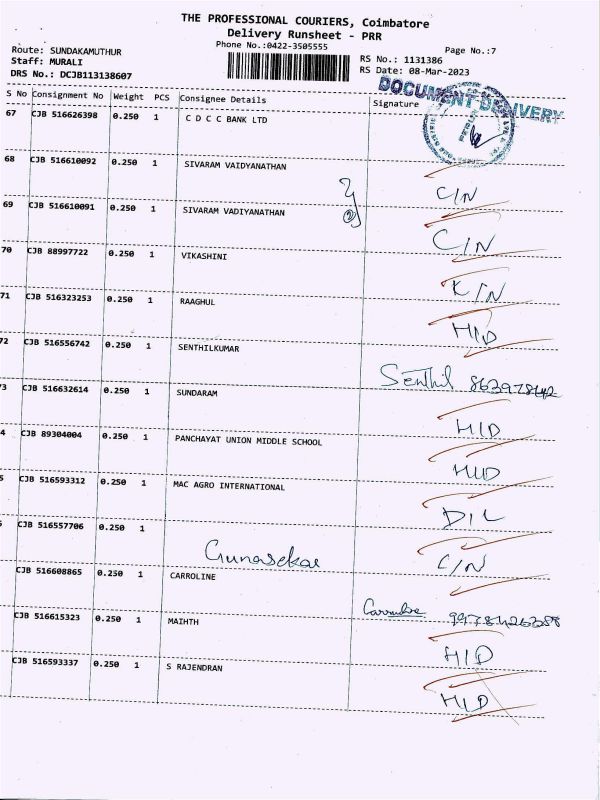 THE PROFESSIONAL COURIERS, Coimbatore
Delivery Runsheet - PRR
Phone No.:0422-3505555
Page No.:7
Route: SUNDAKAMUTHUR
Staff: MURALI
DRS No.: DCJB113138607
RS No.: 1131386
RS Date: 08-Mar-2023
DOCUMENT DELIVERY
S No Consignment No Weight PCS Consignee Details Signature
67 CJB 516626398 0.250 1 C D C C BANK LTD
68 CJB 516610092 0.250 1 SIVARAM VAIDYANATHAN C/N
69 CJB 516610091 0.250 1 SIVARAM VADIYANATHAN C/N
70 CJB 88997722 0.250 1 VIKASHINI K/N
71 CJB 516323253 0.250 1 RAAGHUL H/D
72 CJB 516556742 0.250 1 SENTHILKUMAR Senthil
3 CJB 516632614 0.250 1 SUNDARAM H/D
4 CJB 89304004 0.250 1 PANCHAYAT UNION MIDDLE SCHOOL
5 CJB 516593312 0.250 1 MAC AGRO INTERNATIONAL D/L
CJB 516557706 0.250 1 Gunasekar C/N
CJB 516608865 0.250 1 CARROLINE
CJB 516615323 0.250 1 MAIHTH H/D
CJB 516593337 0.250 1 S RAJENDRAN H/D